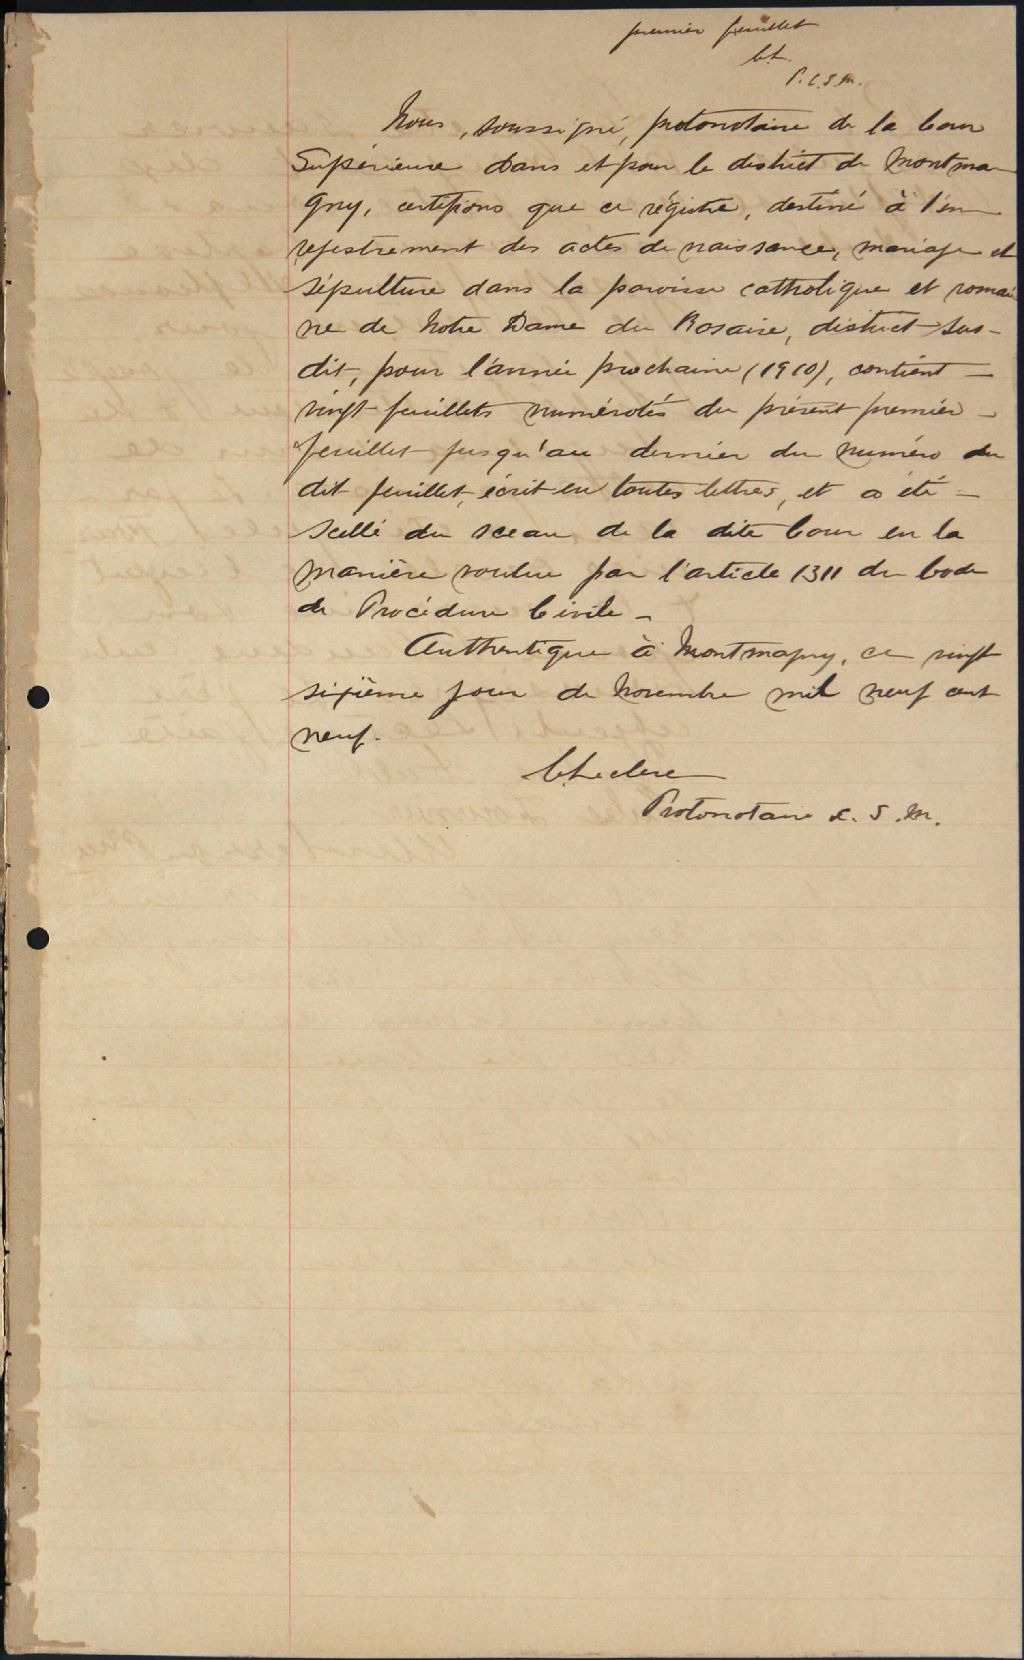 premier feuillet
C.L.
P.C.S.M.
Nous, soussigné, protonotaire de la Cour
Supérieure dans et pour le district de Montma-
gny, certifions que ce régistre, destiné à l'en-
registrement des actes de naissance, mariage et
sépulture dans la paroisse catholique et romai
ne de Notre Dame du Rosaire, district sus-
dit, pour l'année prochaine (1910), contient -
vingt feuillets numérotés du présent premier -
feuillet jusqu'au dernier du numéro du
dit feuillet, écrit en toutes lettres, et a été -
scellé du sceau de la dite Cour en la
manière voulue par l'article 1311 du Code
de Procédure Civile -
Authentique à Montmagny, ce vingt
sixième jour de Novembre mil neuf cent
neuf.
C. Leclerc
Protonotaire C. S. M.